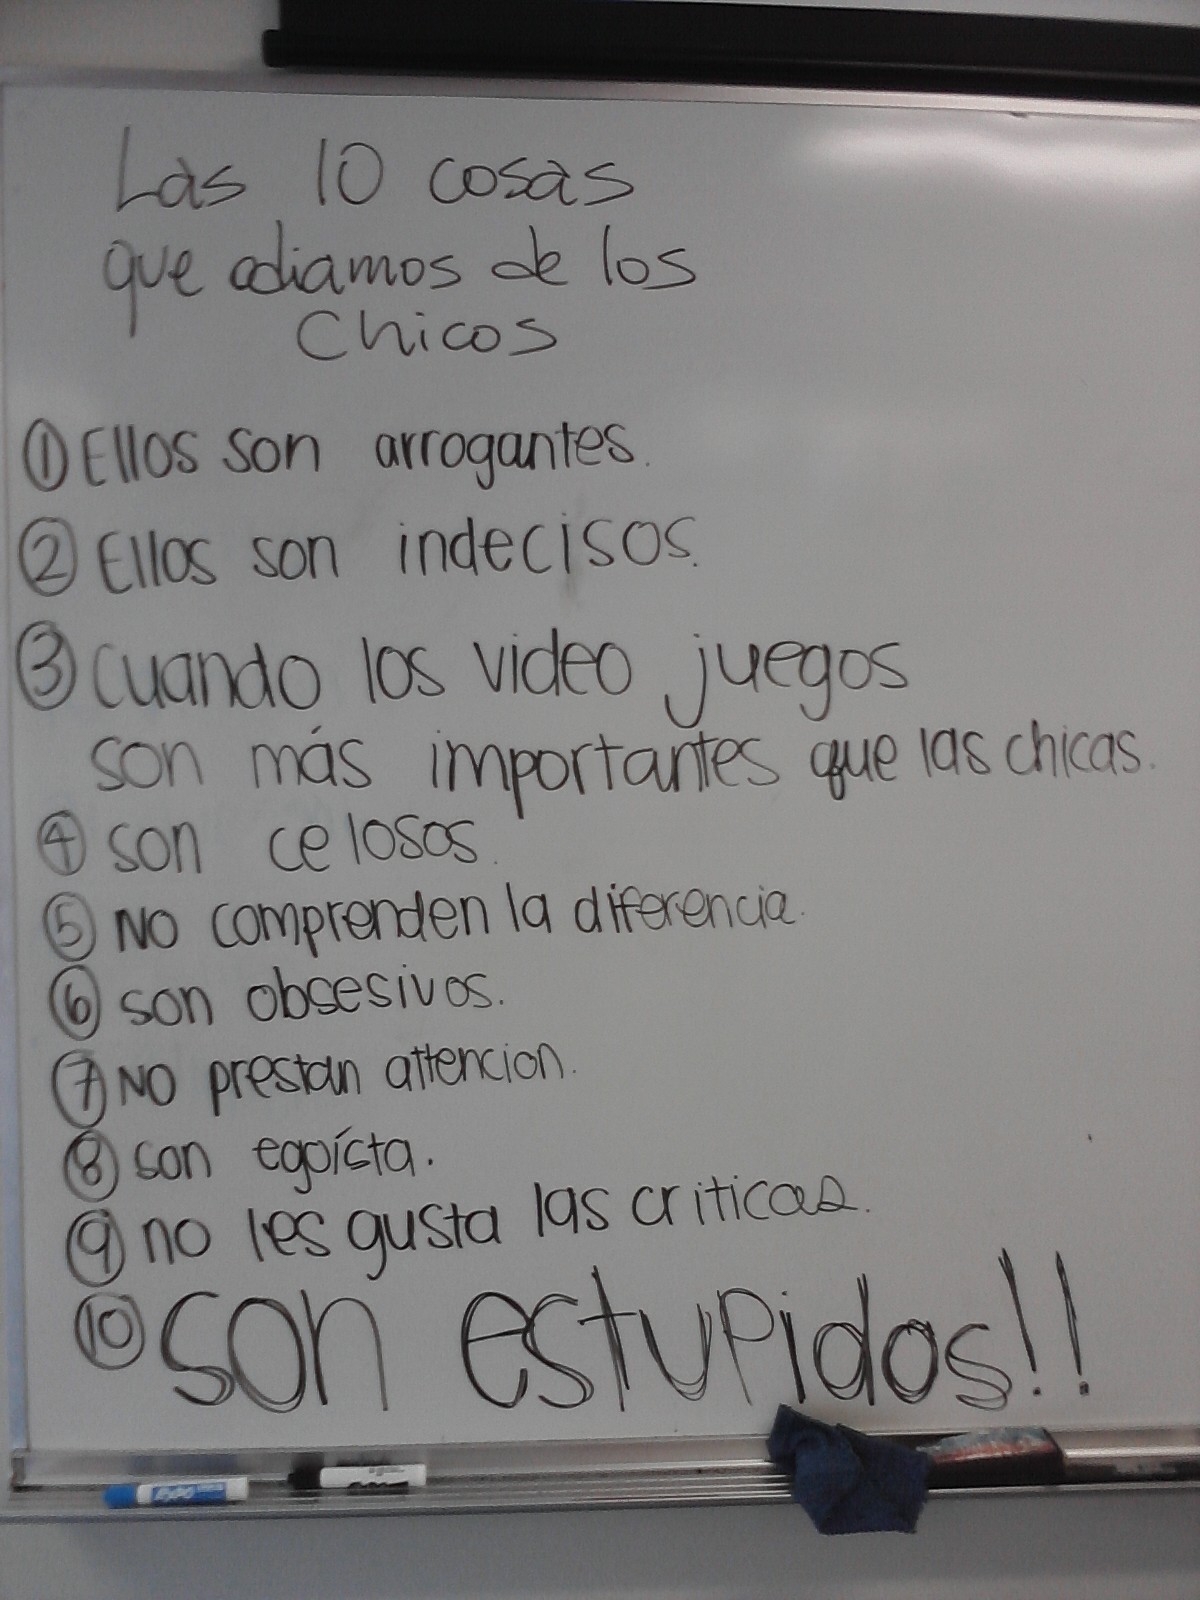 Las 10 cosas
que odiamos de los
Chicos
① Ellos son arrogantes.
② Ellos son indecisos.
③ cuando los video juegos
son más importantes que las chicas.
④ son celosos.
⑤ No comprenden la diferencia.
⑥ son obsesivos.
⑦ No prestan attencion.
⑧ son egoícta.
⑨ no les gusta las criticas.
⑩ son estupidos!!
EXPO